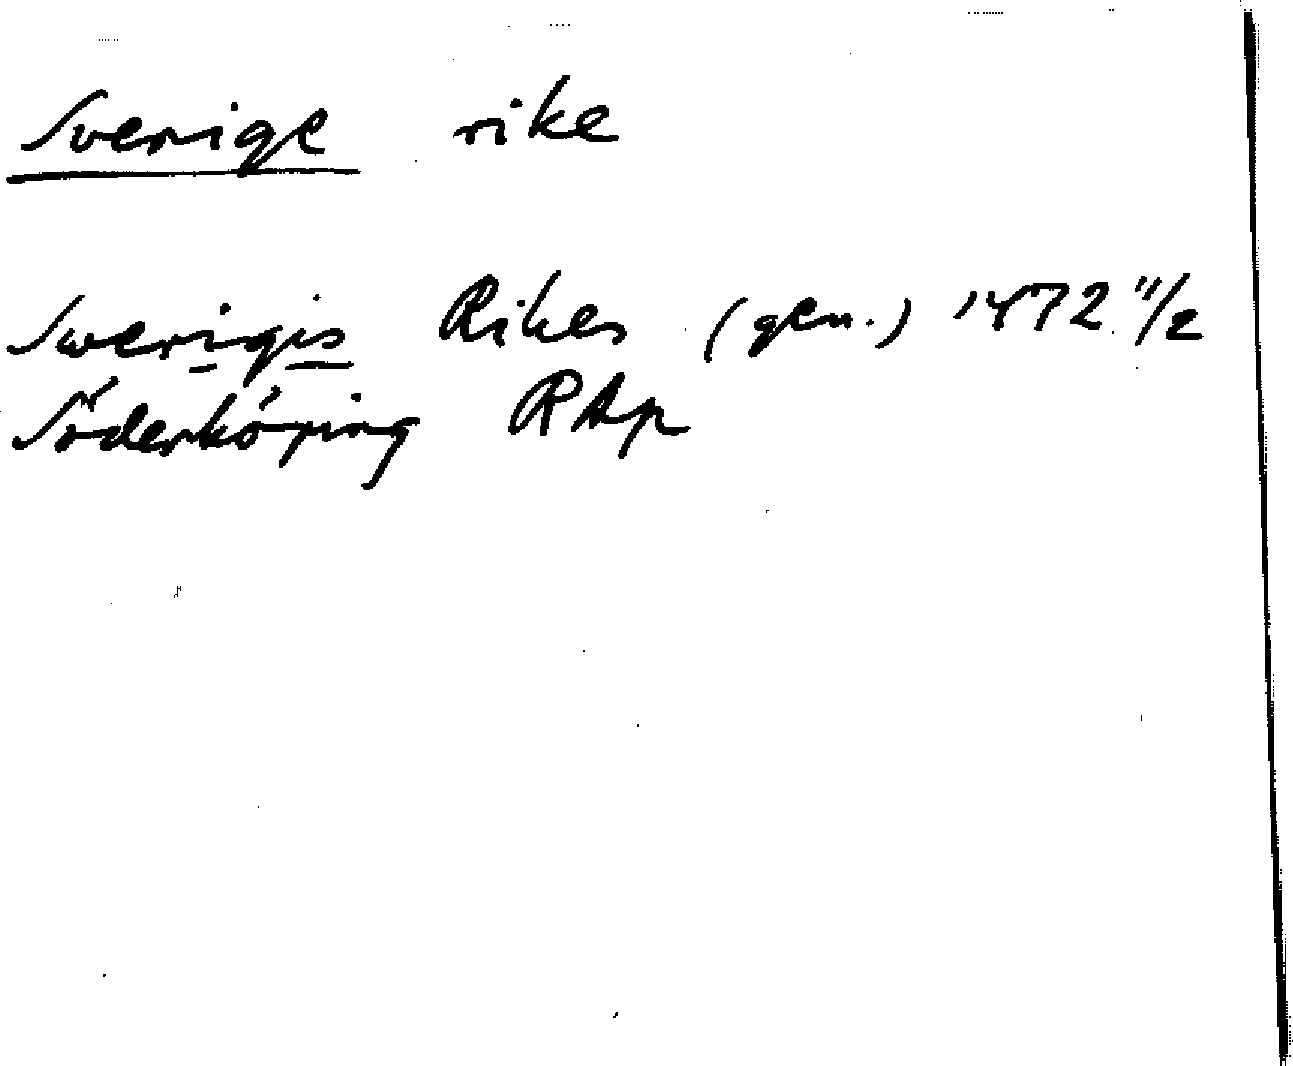 Sverige rike
Swerigis Rikes (gen.) 1472 11/2
Söderköping RAp